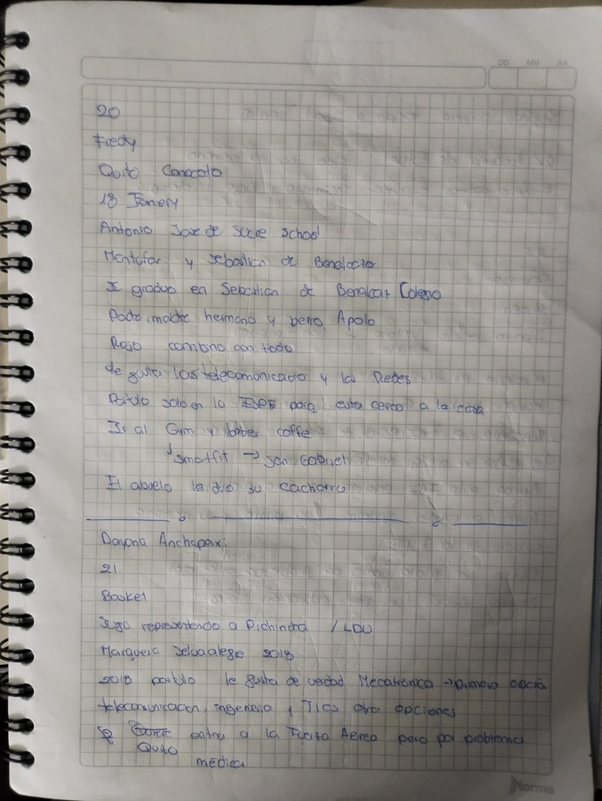 DD MM AA
20
Fredy
Quito Conocoto
18 Jenery
Antonio Jose de Sucre School
Montufar y Sebastian de Benalcazar
Se graduo en Sebastian de Benalcar Colegio
Padre, madre hermano y perro Apolo
Rojo combina con todo
le gusta las telecomunicacio y las Redes
Postulo solo en la para esta cerca a la casa
Ir al Gym y beber coffe
smartfit → San Gabriel
El abuelo le dio su cachorro
Dayana
21
Basket
Jugo representando a Pichincha / LDU
2018
2018 postulo le gusta de verdad Mecatronica → primera opcia
telecomunicacion, ingenieria y TICs otra opciones
entra a la Fuerza Aerea pero por problema
Quito
medica
Norma